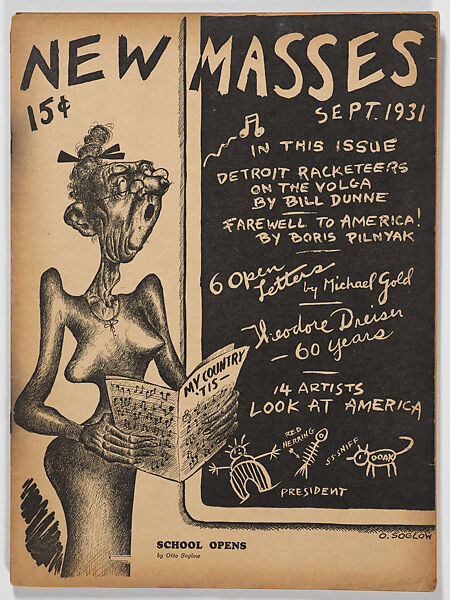 NEW MASSES
15¢
SEPT. 1931
IN THIS ISSUE
DETROIT RACKETEERS
ON THE VOLGA
BY BILL DUNNE
FAREWELL TO AMERICA!
BY BORIS PILNYAK
6 Open
Letters by Michael Gold
Theodore Dreiser
— 60 years
14 ARTISTS
LOOK AT AMERICA
MY COUNTRY
'TIS —
RED
HERRING
S-S-SNIFF
DOAK
PRESIDENT
O. SOGLOW
SCHOOL OPENS
by Otto Soglow